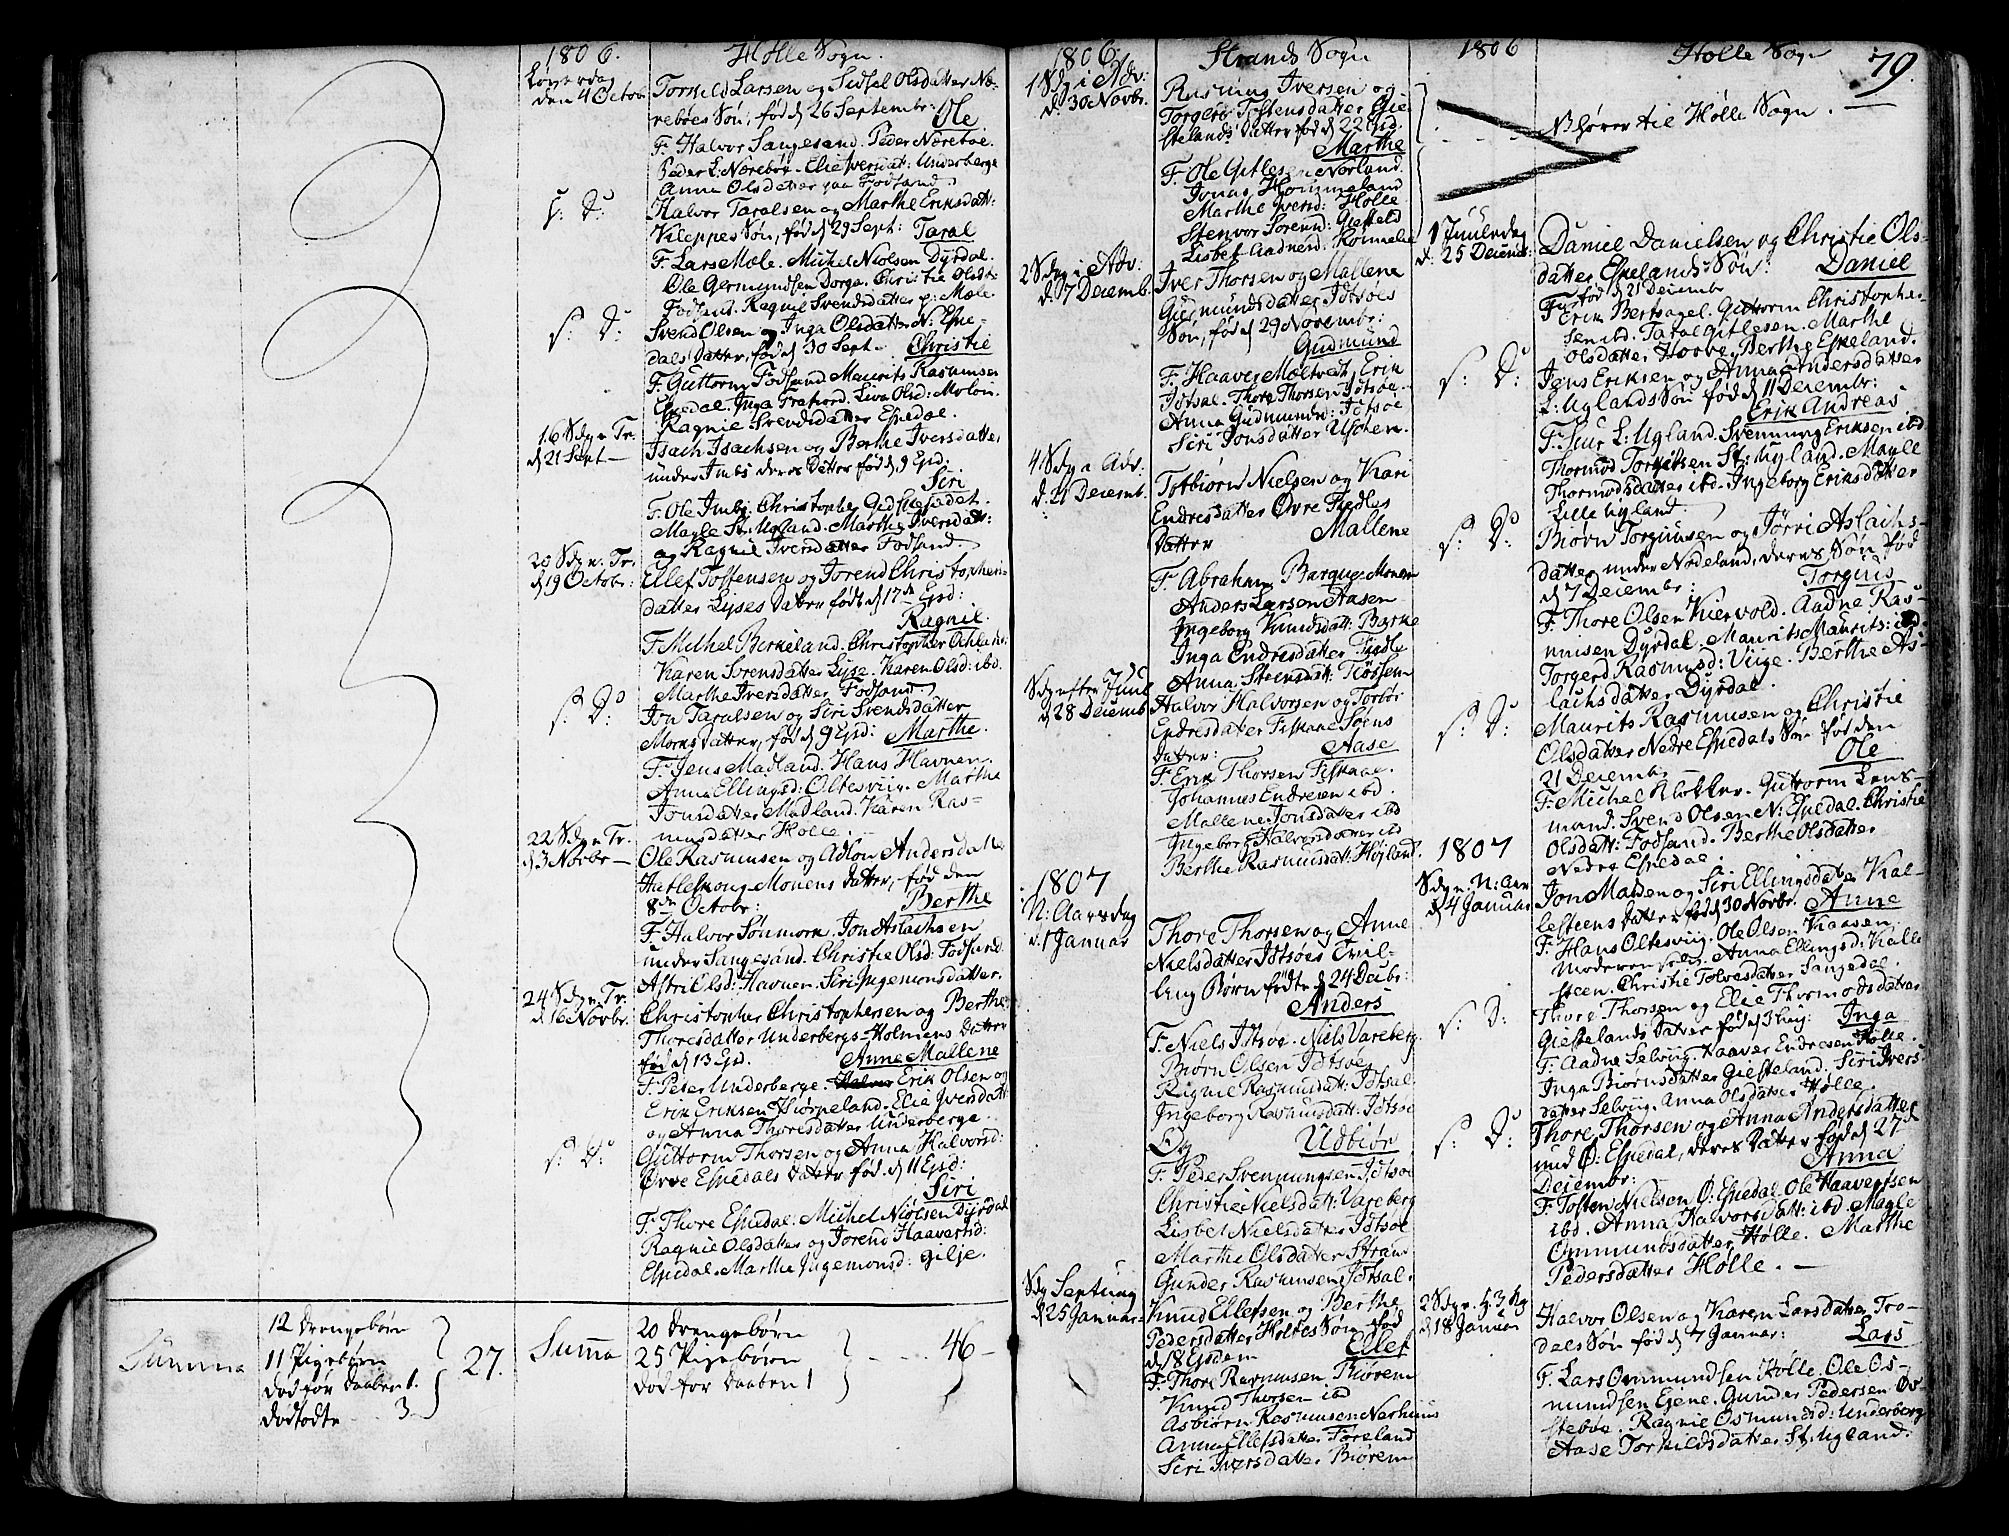 1806.
Hølle Sogn.
Løverdag
den 4 Octobr
Torkild Larsen og Sidsel Olsdatter Næ-
rebøes Søn, fød d 26 Septembr:
Ole
F. Halvor Sangesand. Peder Nærebøe.
Peder L: Nærebøe. Elie Iversdat: Underberge
Anna Olsdatter paa Fodsand.
s: D:
Halvor Taralsen og Marthe Eriksdatt:
Kleppes Søn, fød d 29 Sept: Taral
F. Lars Mæle. Michel Nielsen Dyrdal.
Ole Germundsen Dorge. Christie Olsd:
Fodsand. Ragnil Svendsdatter p: Mæle.
s: D:
Svend Olsen og Inga Olsdatter N: Espe-
dals Datter, fød d 30 Sept. Christie
F. Guttorm Fodsand. Maurits Rasmusen
Espedal. Inga Frafiord. Siva Olsd: Moluin.
Ragnil Svendsdatter Espedal.
16 Sdg n Tr.
d 21 Sept
Isach Isachsen og Berthe Iversdatter
under Imbs deres Datter fød d 9 Ejsd:
Siri
F. Ole Imbs. Christopher Gidskesadet.
Magle St: Ugland. Marthe Iversdatt:
og Ragnil Iversdatter Fodsand.
20 Sdg n. Tr.
d 19 Octobr:
Ellef Tostensen og Jorend Christophers-
datter Lyses Datter født d 17de Ejsd:
Ragnil.
F. Michel Berkeland. Christopher Ochland.
Karen Sørensdatter Lyse. Karen Olsd: ibd.
Marthe Iversdatter Fodsand.
s: D:
Jon Taralsen og Siri Svendsdatter
Morks Datter, fød d 9 Ejsd: Marthe.
F. Jens Madland. Hans Havnen.
Anna Ellingsd: Oltesviig. Marthe
Jonsdatter Madland. Karen Ras-
musdatter Hølle
22 Sdg n Tr.
d 3 Novbr
Ole Rasmusen og Adlou Andersdatter
Hatleskong Monens Datter, fød den
8de Octobr:
Berthe
F. Halvor Sønmork. Jon Aslachsen
under Sangesand. Christie Olsd: Fodsand.
Astri Olsd: Havnen. Siri Ingemonsdatter.
24 Sdg n. Tr.
d 16 Novbr.
Christopher Christophersen og Berthe
Thoresdatter Underbergs-Holmens Datter
fød d 13 Ejsd. Anne Mallene
F. Peter Underberge. Erik Olsen og
Erik Eriksen Hiørpeland. Elie Iversdatt:
og Anna Thoresdatter Underberge
s: D:
Guttorm Thorsen og Anna Halvorsd:
Øvre Espedals Datter fød d 11 Ejsd:
Siri
F. Thore Espedal. Michel Nielsen Dyrdal
Ragnil Olsdatter og Jorend Haavertsd:
Espedal. Marthe Ingemonsd: Gilje.
Summa
12 Drengebørn
11 Pigebørn
død før Daaben 1.
dødfødte 3
27.
Summa
20 Drengebørn
25 Pigebørn
død for Daaben 1
46
1806.
Strands Sogn
1 Sdg i Adv:
d. 30 Novbr.
Rasmus Iversen og
Torgerd Tostensdatter Gie-
stelands Datter fød d 22 Ejsd.
Marthe
F. Ole Gitlesen Norland.
Jonas Hommeland
Marthe Iversd: Hølle
Stenvor Sorensd: Giesteld
Lisbet Aadnesd: Konnelie
2 Sdg i Adv:
d. 7 Decemb.
Iver Thorsen og Mallene
Gudmundsdatter Idtsøes
Søn, fød d 29 Novembr:
Gudmund
F. Haaver Meltvedt. Erik
Idtsøe. Thore Thorsen Idtsøe.
Anna Gudmunds: Idtsøe
Siri Jonsdatter Uskен.
4 Sdg i Adv:
d. 21 Decemb.
Torbiørn Nielsen og Kari
Endresdatter Øvre Tiødles
Datter
Mallene
F. Abraham Barque-Monen
Anders Larsen Aasen
Ingeborg Knudsdatt: Barke
Inga Endresdatter Tiødle
Anna Steensdatt: Tiøssem
Sdg efter Juul
d 28 Decemb
Halvor Halvorsen og Torbør
Endresdatter Fiskaae Søens
Datter:
Aase
F. Erik Thorsen Fiskaae.
Johannes Endresen ibd.
Mallene Jonsdatter ibd
Ingeborg Halvorsdatter ibd
Berthe Rasmusdatt: Højland.
1807
N: Aarsdag
d. 1 Januar
Thore Thorsen og Anne
Nielsdatter Idtsøes Tvil-
ling Børn fødte d 24 Decbr:
Anders
F. Niels Idtsøe. Niels Vareberg.
Biørn Olsen Idtsøe
Ragnil Rasmusdatt: Idtsøe.
Ingeborg Rasmusdatt: Idtsøe
Og
Udbiør
F. Peder Svennungsen Idtsøe
Christie Nielsdatt: Vareberg
Lisbet Nielsdatter Idtsøe
Marthe Olsdatter Stran
Gunder Rasmusen Idtsøe.
Sdg Septuag
d 25 Januar
Knud Ellefsen og Berthe
Pedersdatter Holtes Søn fød
d 18 Ejsdem
Ellef
F. Thore Rasmusen Thiørem
Knud Thorsen ibd
Asbiørn Rasmusen Nerhuus
Anna Ellefsdatter Føreland
Siri Iversdatter Biørem
1806
Hølle Sogn
79.
NB hører til Hølle Sogn.
1 Juuledag
d. 25 Decemb:
Daniel Danielsen og Christie Ols-
datter Espelands Søn:
Daniel
fød d 21 Decembr
F. Erik Bertsagel. Guttorm Christophe-
sen ibd. Taral Gitlesen. Marthe
Olsdatter Horve. Berthe Espeland.
s: D:
Jens Eriksen og Anna Andersdatter
L: Uglands Søn fød d 11 Decembr:
Erik Andreas
F. Thur L: Ugland. Svennung Eriksen ibd
Thormod Torkilsen St: Ugland. Magle
Thormodsdatter ibd. Ingeborg Eriksdatter
Lille Ugland.
s: D:
Biørn Torgiusen og Jørri Aslachs-
datter under Nodeland, deres Søn fød
d 7 Decembr:
Torgius
F. Thore Olsen Kiervold. Aadne Ras-
musen Dyrdal. Maurits Maurits: ibd
Torgerd Rasmusd: Viige. Berthe As-
lachsdatter Dyrdal.
s: D:
Maurits Rasmusen og Christie
Olsdatter Nedre Espedals Søn fød den
21 Decembr
Ole
F. Michel Klokker. Guttorm Lens-
mand. Svend Olsen N: Espedal. Christie
Olsdatt: Fodsand. Berthe Olsdatter
Nedre Espedal.
1807
Sdg n. N: Aar
d 4 Januar
Jon Matsen og Siri Ellingsdatter Kal-
lesteens Datter fød d 30 Novbr. Anne
F. Hans Oltesviig. Ole Olsen Kaasen
Moderen selv. Anna Ellingsd: Kalle
steen. Christie Tolvesdatter Sangedal.
s: D:
Thore Thorsen og Elie Thormodsdatter
Giestelands Datter fød d 3 huj: Inga
F. Aadne Selviig. Haaver Endresen Hølle.
Inga Biørnsdatter Giesteland. Siri Ivers-
datter Selviig. Anna Olsdatter Hølle.
s: D:
Thore Thorsen og Anna Andersdatter
und Ø: Espedal, deres Datter fød d 27de
Decembr:
Anna
F. Tosten Nielsen Ø: Espedal. Ole Haavertsen
ibd. Anna Halvorsdatt: ibd. Magle
Ommundsdatter Hølle. Marthe
Pedersdatter Hølle.
2 Sdg n. H: 3 Kg
d 18 Januar
Halvor Olsen og Karen Larsdatter Tro-
dals Søn fød d 7 Januar:
Lars
F. Lars Ommundsen Hølle. Ole Os-
mundsen Eiene. Gunder Pedersen Øs-
stebøe. Ragnil Osmundsd: Underberg
Aase Torkildsdatter St: Ugland.